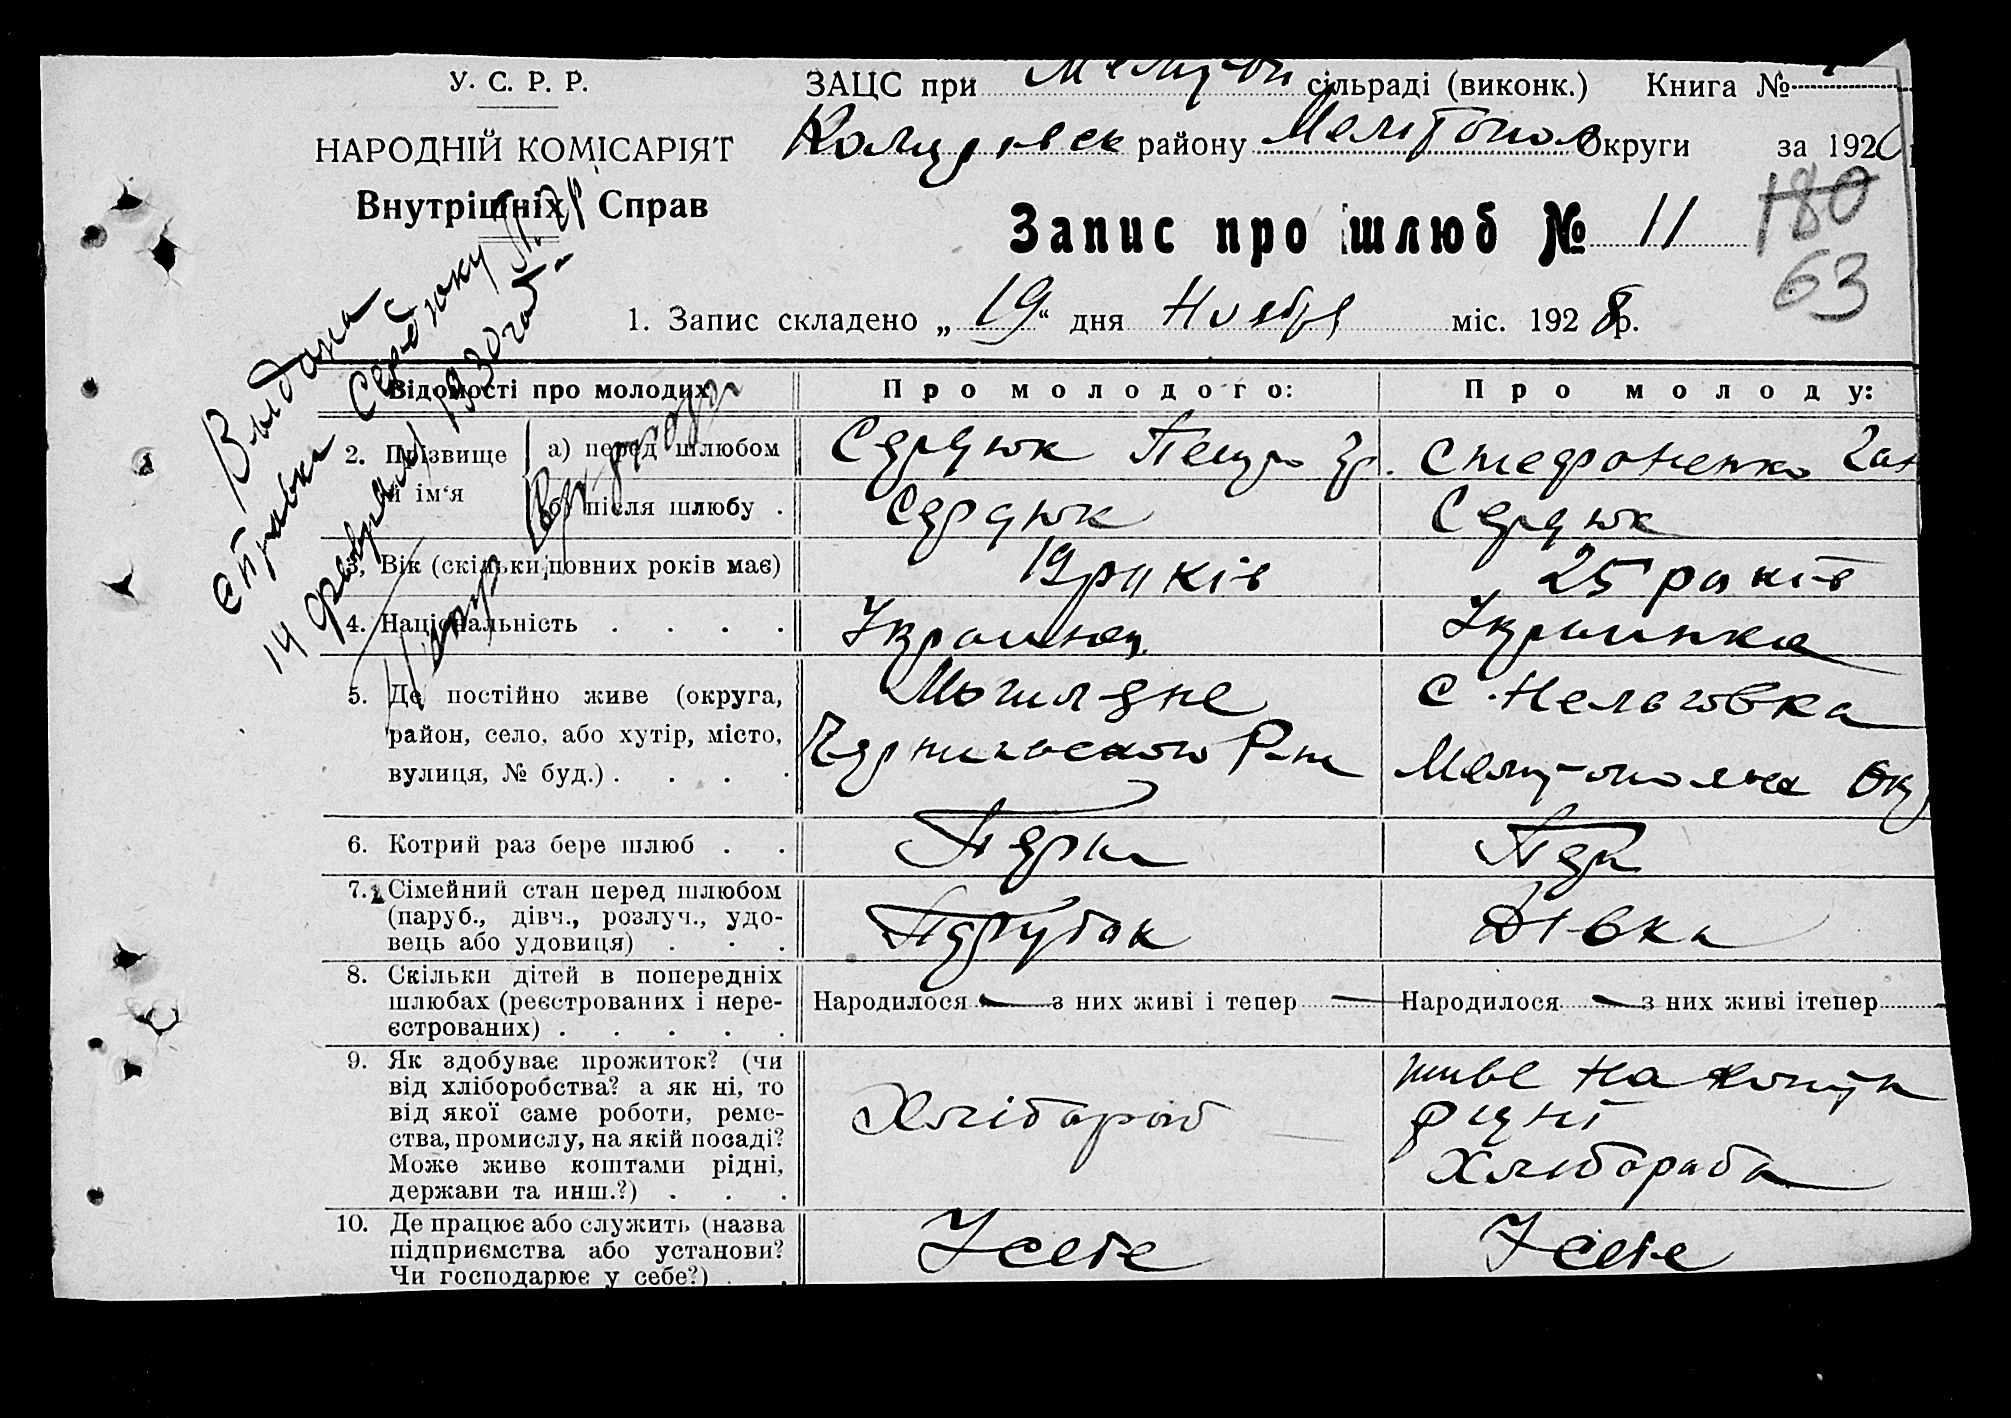 У. С. Р. Р.
НАРОДНІЙ КОМІСАРІЯТ
Внутрішніх Справ
ЗАЦС при сільраді (виконк.) Книга №
району Мелітопол Округи за 192
Запис про шлюб № 11
180
63
1. Запис складено „19“ дня Ноября міс. 1928 р.
Выдана
справка Сердюку П. Гр.
14 февраля 1930 года
Відомості про молодих
Про молодого:
Про молоду:
2. Прізвище й ім‘я
а) перед шлюбом
Сердюк Петро Гр.
Стефоненко Ган
б) після шлюбу .
Сердюк
Сердюк
3. Вік (скільки повних років має)
19 рпків
25 рокі-в
4. Національність . . . .
Украинец
Украинка
5. Де постійно живе (округа,
район, село, або хутір, місто,
вулиця, № буд.) . . . .
с. Нельговка
6. Котрий раз бере шлюб . .
Перш
Пер
7. Сімейний стан перед шлюбом
(паруб., дівч., розлуч., удо-
вець або удовиця) . . .
Парубок
Дівка
8. Скільки дітей в попередніх
шлюбах (реєстрованих і нере-
єстрованих) . . . . .
Народилося — з них живі і тепер —
Народилося — з них живі ітепер -
9. Як здобуває прожиток? (чи
від хліборобства? а як ні, то
від якої саме роботи, реме-
ства, промислу, на якій посаді?
Може живе коштами рідні,
держави та инш.?) . . .
Хлібороб
живе на кошти
рідні
Хлібороба
10. Де працює або служить (назва
підприємства або установи?
Чи господарює у себе?) . .
У себе
У себе